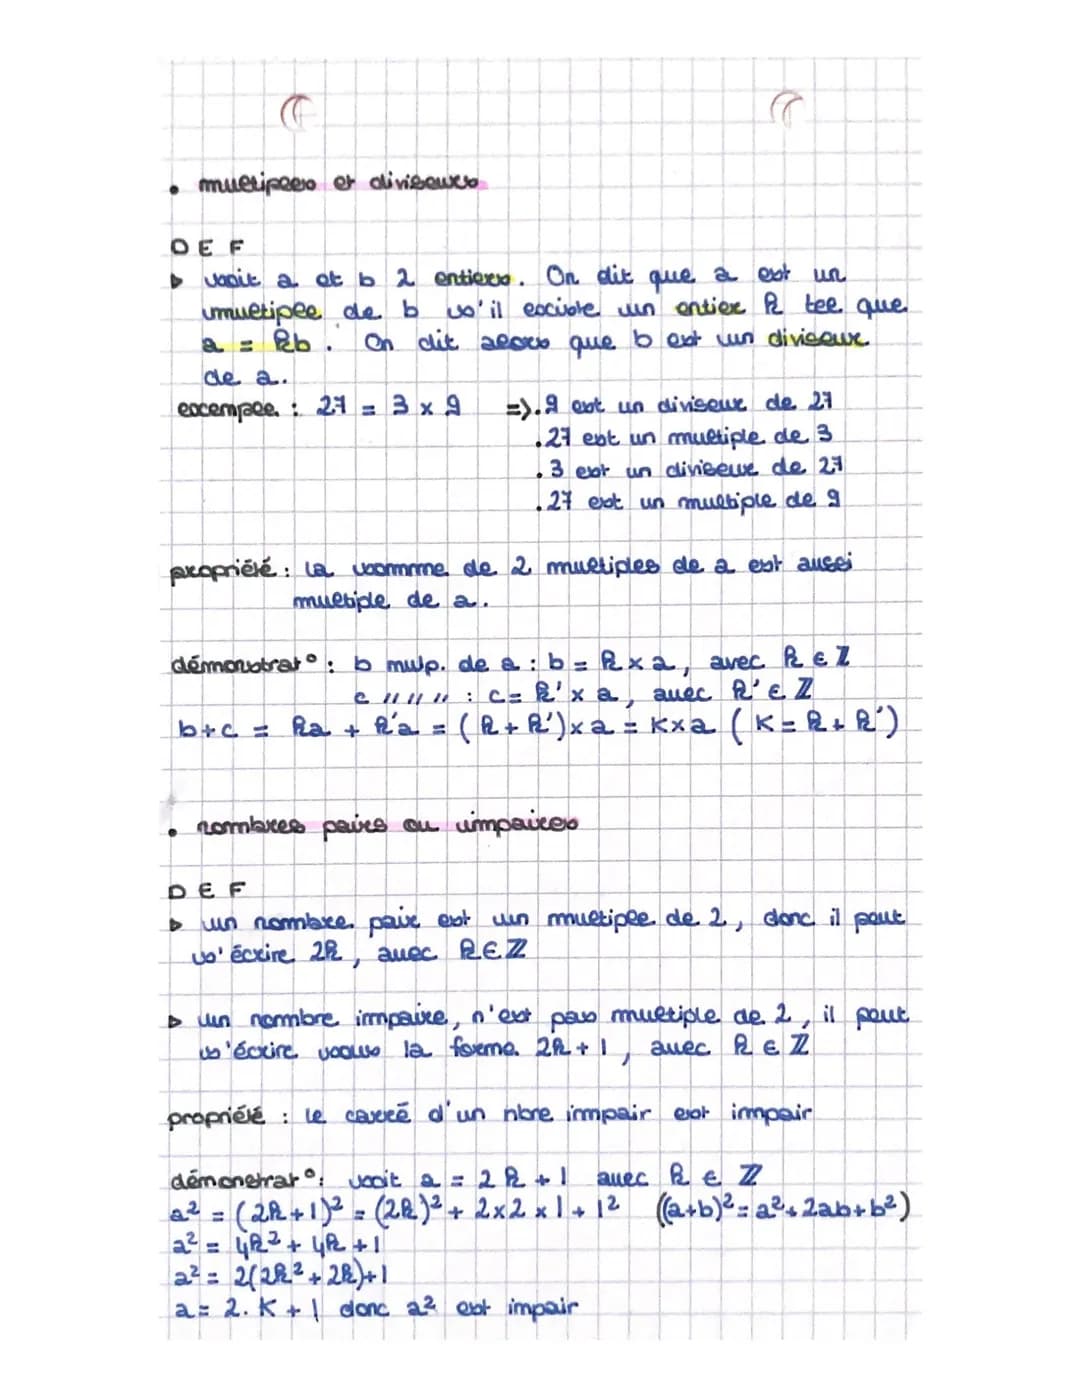 • multiples et diviseurs
DEF
▸ soit a et b 2 entiers. On dit que a est un
multiple de b s'il existe un entier k tel que
a = kb. On dit alors que b est un diviseur
de a.
exemple : 27 = 3 × 9 => . 9 est un diviseur de 27
. 27 est un multiple de 3
. 3 est un diviseur de 27
. 27 est un multiple de 9
propriété : la somme de 2 multiples de a est aussi
multiple de a.
démonstrat° : b mulp. de a : b = k × a, avec k ∈ ℤ
c // // // : c = k' × a, avec k' ∈ ℤ
b + c = ka + k'a = (k + k') × a = K × a (K = k + k')
• nombres pairs ou impaires
DEF
▸ un nombre pair est un multiple de 2, donc il peut
s'écrire 2k, avec k ∈ ℤ
▸ un nombre impaire, n'est pas multiple de 2, il peut
s'écrire sous la forme 2k + 1, avec k ∈ ℤ
propriété : le carré d'un nbre impair est impair
démonstrat° : soit a = 2k + 1 avec k ∈ ℤ
a² = (2k + 1)² = (2k)² + 2×2 × 1 + 1² ((a+b)² = a² + 2ab + b²)
a² = 4k² + 4k + 1
a² = 2(2k² + 2k) + 1
a = 2. K + 1 donc a² est impair